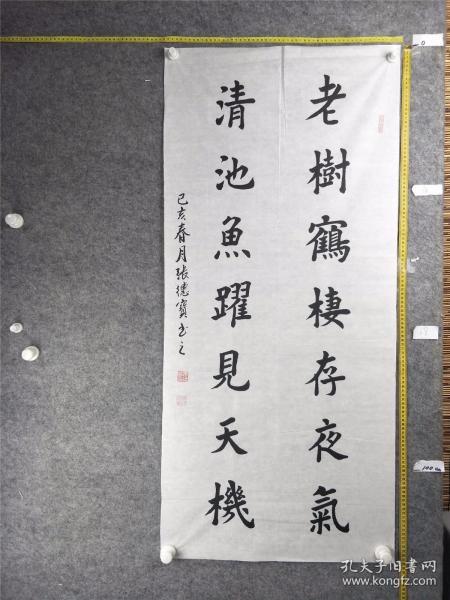 老樹鶴棲存夜氣
清池魚躍見天機
己亥春月張德寶书之
0
100cm
孔夫子旧书网
www.kongfz.com